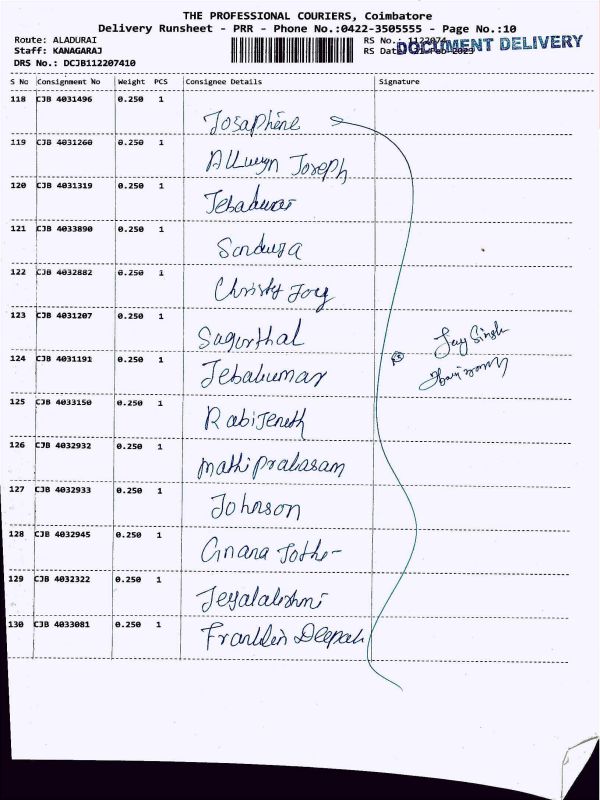 THE PROFESSIONAL COURIERS, Coimbatore
Delivery Runsheet - PRR - Phone No.:0422-3505555 - Page No.:10
Route: ALADURAI
RS No.:
Staff: KANAGARAJ
RS Date
DOCUMENT DELIVERY
DRS No.: DCJB112207410
S No Consignment No Weight PCS Consignee Details Signature
118 CJB 4031496 0.250 1
Josaphine
119 CJB 4031260 0.250 1
Allwyn Joseph
120 CJB 4031319 0.250 1
121 CJB 4033890 0.250 1
122 CJB 4032882 0.250 1
Christy Joey
123 CJB 4031207 0.250 1
Sagurthal
Jay Singh
124 CJB 4031191 0.250 1
Jebakumar
125 CJB 4033150 0.250 1
Rabi Jeneth
126 CJB 4032932 0.250 1
Mathi Prakasam
127 CJB 4032933 0.250 1
Johnson
128 CJB 4032945 0.250 1
Gnana Jothe -
129 CJB 4032322 0.250 1
Jeyalakshmi
130 CJB 4033081 0.250 1
Franklin Deepak